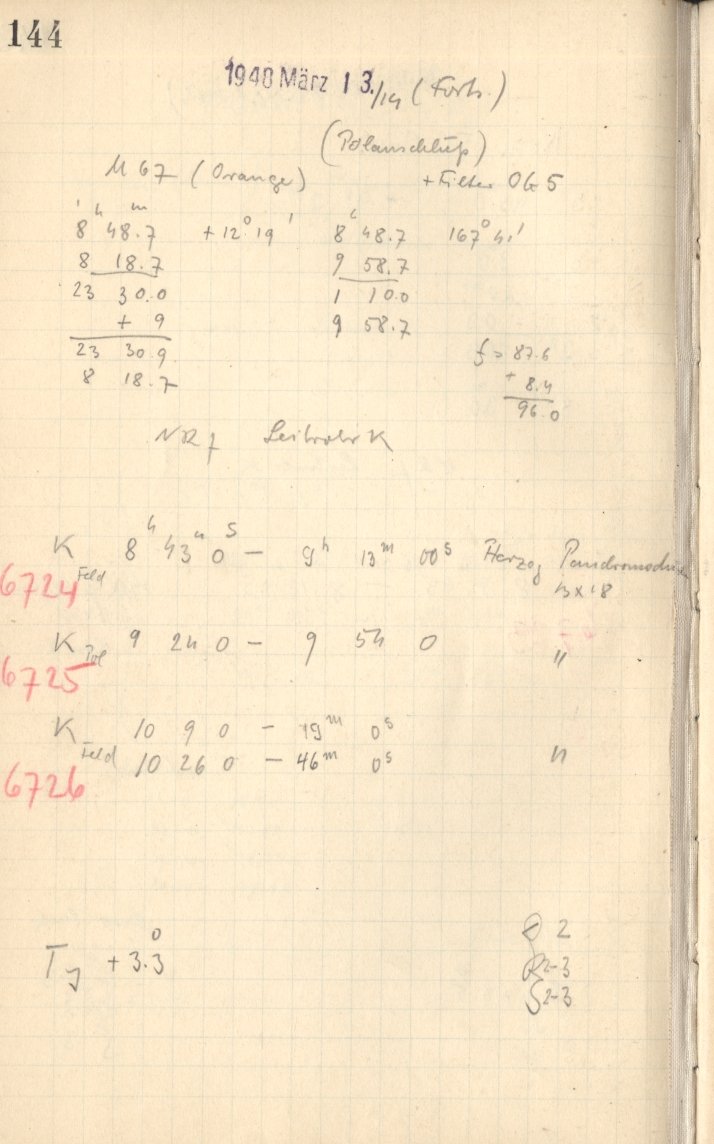 144
1940 März 13./14 (Forts.)
(Polanschluß)
M 67 (Orange) + Filter OG 5
8 h 48.7 m + 12° 19' 8 h 48.7 167° 41'
8 18.7 9 58.7
23 30.0 1 10.0
+ 9 9 58.7
23 30.9 f = 87.6
8 18.7 + 8.4
96.0
Leitrohr K
K Feld 8 h 43 m 0 s – 9 h 13 m 00 s Herzog
6724 13 x 18
K Pol 9 24 0 – 9 54 0 "
6725
K Feld 10 9 0 – 19 m 0 s
10 26 0 – 46 m 0 s "
6726
2
T + 3.3°
R 2-3
S 2-3